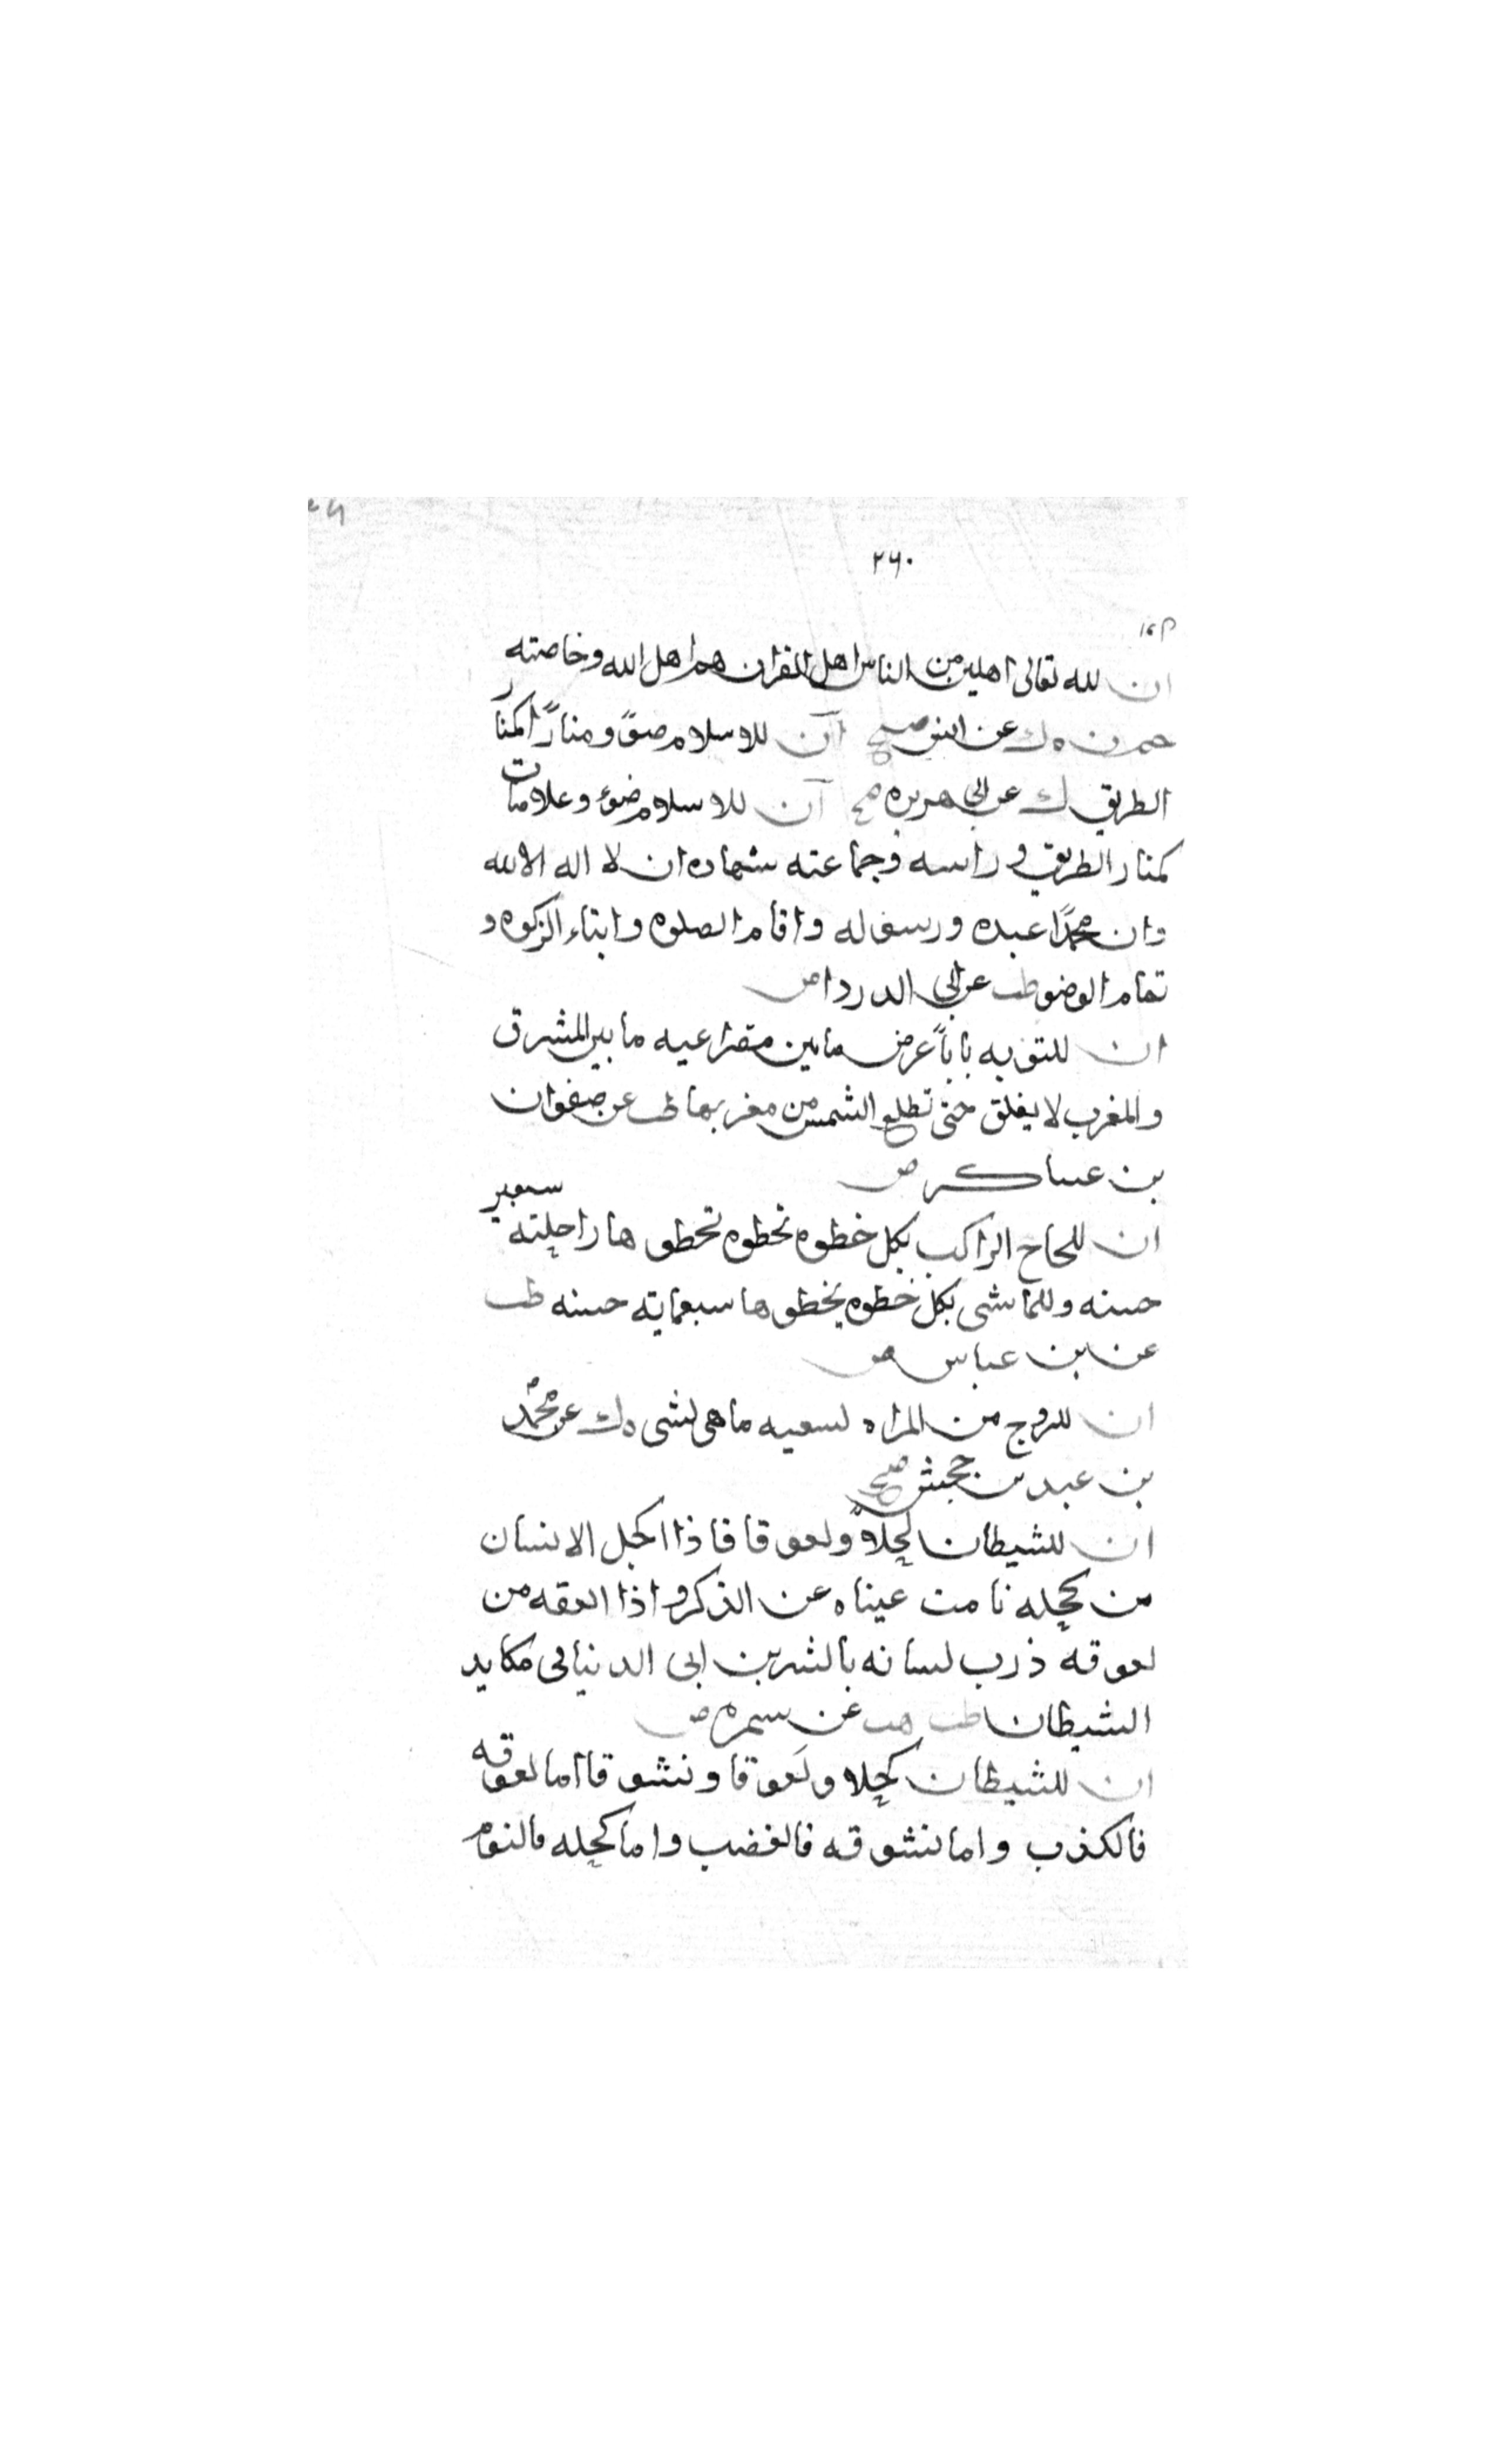 ٢٦٠
ان لله تعالى اهلين من الناس اهل القران هم اهل الله وخاصته
حم ن ه ك عن انس صح ان للاسلام صوًى ومنارًا كمنار
الطريق ك عن ابى هريره صح ان للاسلام ضوء وعلامات
كمنار الطريق وراسه وجماعته شهاده ان لا اله الا الله
وان محمدًا عبده ورسوله واقام الصلوه وايتاء الزكوه و
تمام الوضو طب عن ابى الدردا ض
ان للتوبه بابًا عرض مابين مصراعيه ما بين المشرق
والمغرب لا يغلق حتى تطلع الشمس من مغربها طب عن صفوان
بن عساكر ض
ان للحاج الراكب بكل خطوه تخطوه تخطوها راحلته سبعين
حسنه وللماشى بكل خطوه يخطوها سبعمايه حسنه طب
عن بن عباس ض
ان للزوج من المراه لسعبه ما هى لشى ه ك عن محمد
بن عبد بن جحش صح
ان للشيطان كحلاً ولعوقا فاذا اكحل الانسان
من كحله نامت عيناه عن الذكر واذا العقه من
لعوقه ذرب لسانه بالشر بن ابى الدنيا فى مكايد
الشيطان طب هب عن سمره ض
ان للشيطان كحلا ولعوقا ونشوقا اما لعوقه
فالكذب واما نشوقه فالغضب واما كحله فالنوم